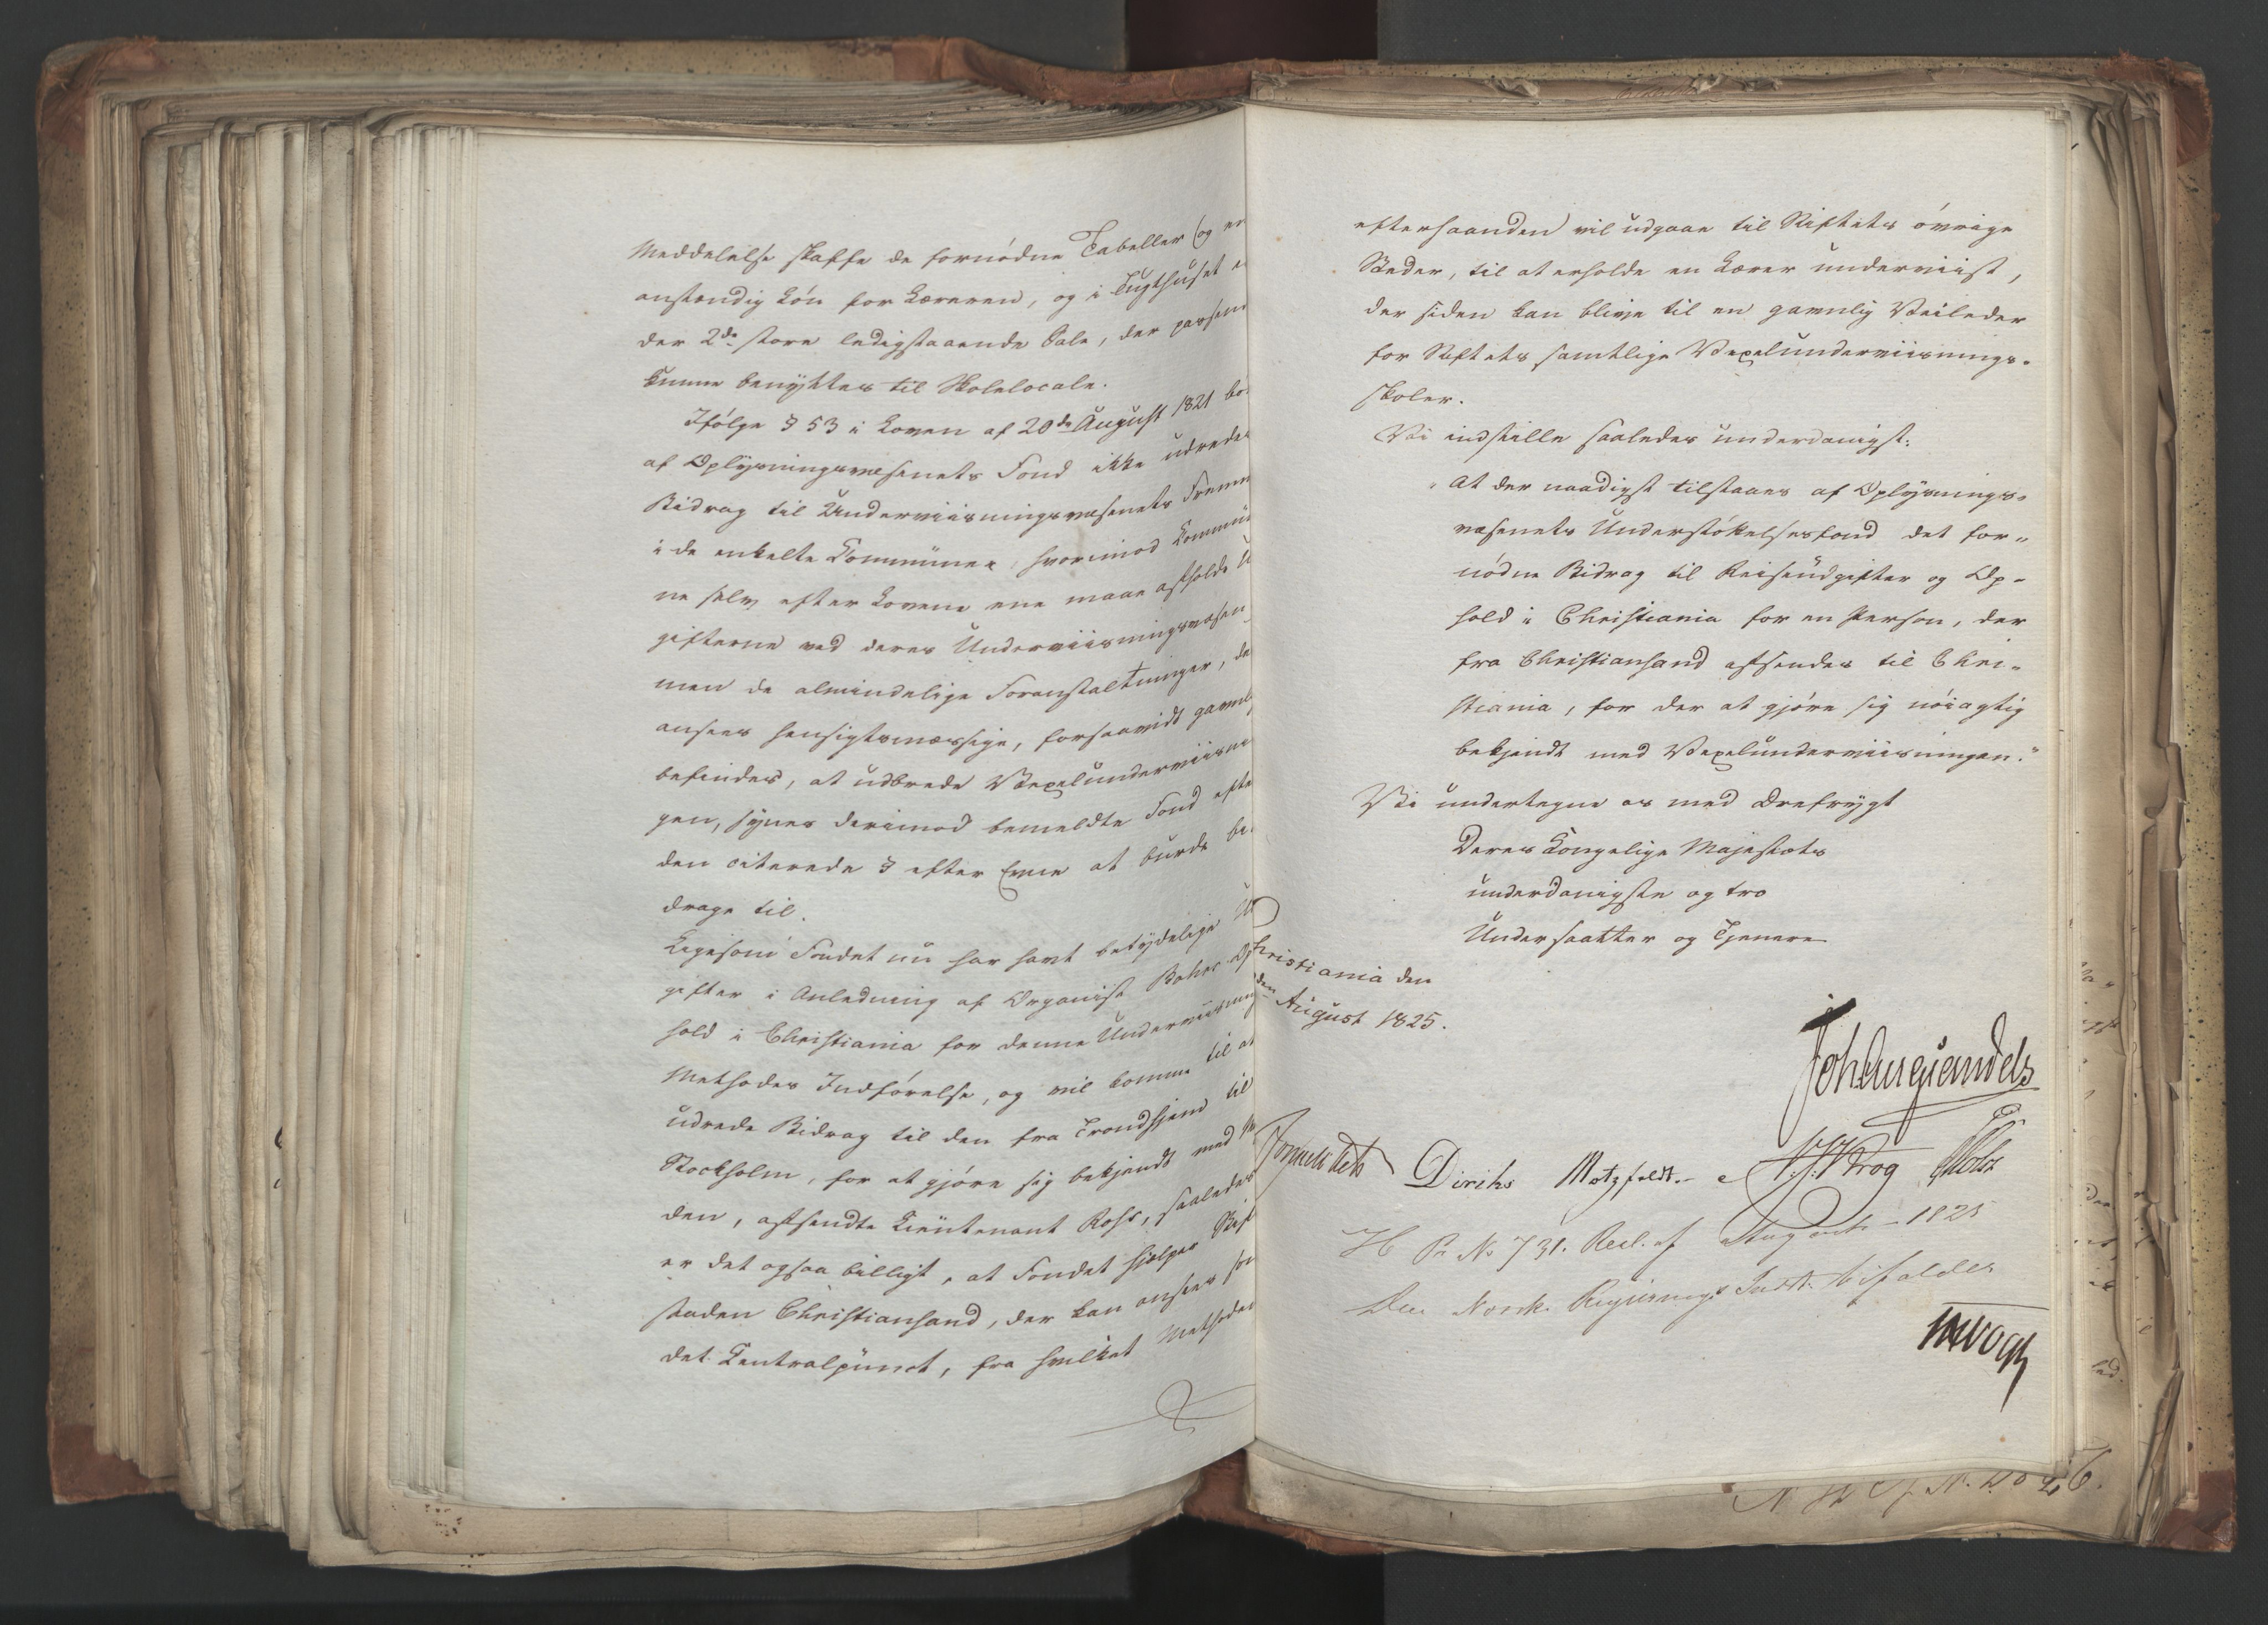 Meddelelse skaffe de fornødne Tabeller og en
anstændig Løn for Læreren, og i Tugthuset e
der 2de store ledigstaaende Sale, der passen
kunne benyttes til Skolelocale.
Ifølge § 53 i Loven af 20de August 1821 bø
af Oplysningsvæsenets Fond ikke udredes
Bidrag til Underviisningsvæsenets Fremm
i de enkelte Communer, hvorimod Commu
ne selv efter Lovene ene maae afholde U
gifterne ved deres Underviisningsvæsen
men de almindelige Foranstaltninger, de
ansees hensigtsmæssige, forsaavidt gavnlig
befindes, at udbrede Vexelunderviisnin
gen, synes derimod bemeldte Fond efter
den citerede § efter Evne at burde bi-
drage til.
Ligesom Fondet nu har havt betydelige Ud
gifter i Anledning af Organist Bohrs Op
hold i Christiania for denne Underviisning
Methodes Indførelse, og vil komme til at
udrede Bidrag til den fra Trondhjem til
Stockholm, for at gjøre sig bekjendt med Me
den, afsendte Lieutenant Ross, saaledes
er det ogsaa billigt, at Fondet hjelper Stift
staden Christiansand, der kan ansees for
det Centralpunct, fra hvilket Methoden
efterhaanden vil udgaae til Stiftets øvrige
Steder, til at erholde en Lærer underviist,
der siden kan blive til en gavnlig Veileder
for Stiftets samtlige Vexelunderviisnings-
skoler.
Vi indstille saaledes underdanigst:
"At der naadigst tilstaaes af Oplysnings-
væsenets Understøttelsesfond det for-
nødne Bidrag til Reiseudgifter og Op-
hold i Christiania for en Person, der
fra Christiansand afsendes til Chri-
stiania, for der at gjøre sig nøiagtig
bekjendt med Vexelunderviisningen."
Vi undertegne os med Ærefrygt
Deres Kongelige Majestæts
underdanigste og tro
Undersaatter og Tjenere
Christiania den
den August 1825.
Joh Aug Sandels
Diriks Motzfeldt. Krog Holst
PNo 731. Resl. af August 1825
Den Norske Regjerings Indst. bifaldes
Vogt